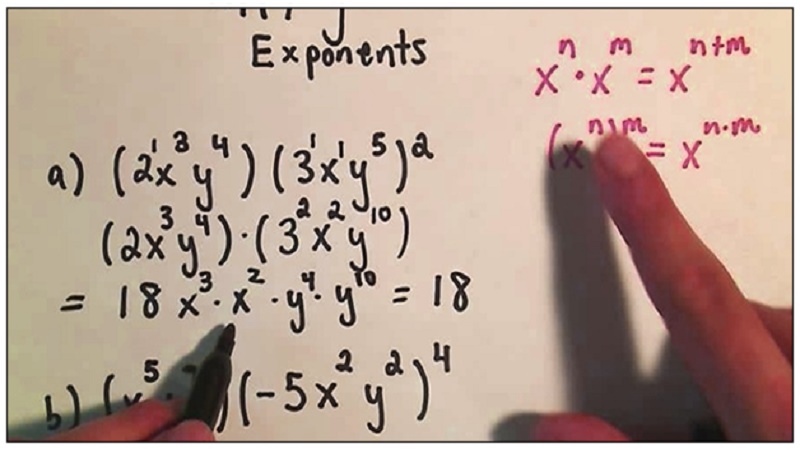 Exponents
xⁿ · xᵐ = xⁿ⁺ᵐ
(xⁿ)ᵐ = xⁿ·ᵐ
a) (2¹x³y⁴)(3¹x¹y⁵)²
(2x³y⁴)·(3²x²y¹⁰)
= 18 x³· x² · y⁴· y¹⁰ = 18
b) (x⁵ (-5x²y²)⁴